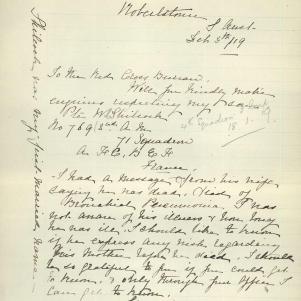 Robertstown
S Aust
Feb 5th/19
To the Red Cross Bureau.
Will you kindly make
enquiries respecting my
Pte W Philcock
No 769 3rd A.M
4th Squadron
71 Squadron
A. F. C, B. E. F
France
I had a message from his wife
saying he was dead, died of
Bronchial Pneumonia, I was
not aware of his illness & how long
he was ill. I should like to know
if he express any wish regarding
his Mother before he died. I should
be so grateful to you if you could get
to know. & only through your office I
can get to know.
Philcock was my first married name